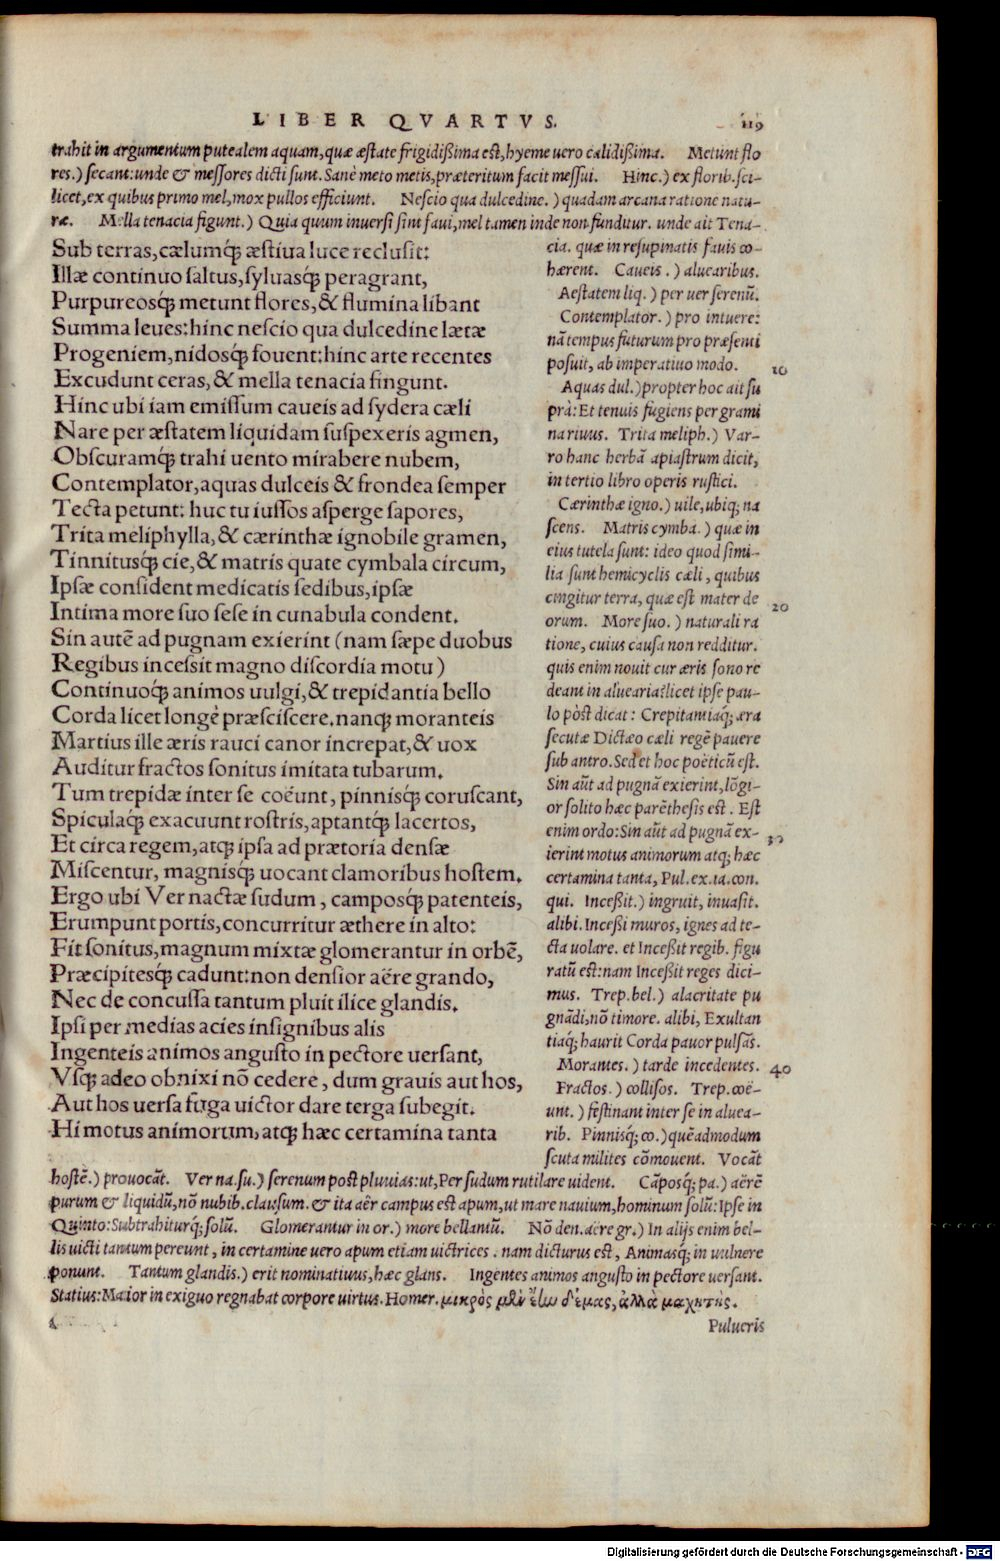 LIBER QVARTVS.
119
trahit in argumentum putealem aquam, quæ æstate frigidißima est, hyeme uero calidißima. Metunt flo
res.) secant: unde & messores dicti sunt. Sanè meto metis, præteritum facit messui. Hinc.) ex florib. sci-
licet, ex quibus primo mel, mox pullos efficiunt. Nescio qua dulcedine.) quadam arcana ratione natu-
ræ. Mella tenacia figunt.) Quia quum inuersi sint faui, mel tamen inde non funditur. unde ait Tena-
Sub terras, cælumq́; æstiua luce reclusit:
Illæ continuo saltus, syluasq́; peragrant,
Purpureosq́; metunt flores, & flumina libant
Summa leues: hinc nescio qua dulcedine lætæ
Progeniem, nidosq́; fouent: hinc arte recentes
Excudunt ceras, & mella tenacia fingunt.
Hinc ubi iam emissum caueis ad sydera cæli
Nare per æstatem liquidam suspexeris agmen,
Obscuramq́; trahi uento mirabere nubem,
Contemplator, aquas dulceis & frondea semper
Tecta petunt: huc tu iussos asperge sapores,
Trita meliphylla, & cærinthæ ignobile gramen,
Tinnitusq́; cie, & matris quate cymbala circum,
Ipsæ consident medicatis sedibus, ipsæ
Intima more suo sese in cunabula condent.
Sin autē ad pugnam exierint (nam sæpe duobus
Regibus incessit magno discordia motu)
Continuoq́; animos uulgi, & trepidantia bello
Corda licet longè præsciscere. nanq́; moranteis
Martius ille æris rauci canor increpat, & uox
Auditur fractos sonitus imitata tubarum.
Tum trepidæ inter se coëunt, pinnisq́; coruscant,
Spiculaq́; exacuunt rostris, aptantq́; lacertos,
Et circa regem, atq́; ipsa ad prætoria densæ
Miscentur, magnisq́; uocant clamoribus hostem.
Ergo ubi Ver nactæ sudum, camposq́; patenteis,
Erumpunt portis, concurritur æthere in alto:
Fit sonitus, magnum mixtæ glomerantur in orbē,
Præcipitesq́; cadunt: non densior aëre grando,
Nec de concussa tantum pluit ilice glandis.
Ipsi per medias acies insignibus alis
Ingenteis animos angusto in pectore uersant,
Vsq́; adeo obnixi nō cedere, dum grauis aut hos,
Aut hos uersa fuga uictor dare terga subegit.
Hi motus animorum, atq́; hæc certamina tanta
cia. quæ in resupinatis fauis co-
hærent. Caueis.) aluearibus.
Aestatem liq.) per uer serenū.
Contemplator.) pro intuere:
nā tempus futurum pro præsenti
posuit, ab imperatiuo modo.
10
Aquas dul.) propter hoc ait su
prà: Et tenuis fugiens per grami
na riuus. Trita meliph.) Var-
ro hanc herbā apiastrum dicit,
in tertio libro operis rustici.
Cærinthæ igno.) uile, ubiq; na
scens. Matris cymba.) quæ in
eius tutela sunt: ideo quod simi-
lia sunt hemicyclis cæli, quibus
cingitur terra, quæ est mater de
20
orum. More suo.) naturali ra
tione, cuius causa non redditur.
quis enim nouit cur æris sono re
deant in aluearia? licet ipse pau-
lo pòst dicat: Crepitantiaq́; æra
secutæ Dictæo cæli regē pauere
sub antro. Sed et hoc poëticū est.
Sin aūt ad pugnā exierint, lōgi-
or solito hæc parēthesis est. Est
enim ordo: Sin aūt ad pugnā ex-
30
ierint motus animorum atq; hæc
certamina tanta, Pul. ex. ia. con.
qui. Inceßit.) ingruit, inuasit.
alibi. Inceßi muros, ignes ad te-
cta uolare. et Inceßit regib. figu
ratū est: nam Inceßit reges dici-
mus. Trep. bel.) alacritate pu
gnādi, nō timore. alibi, Exultan
tiaq́; haurit Corda pauor pulsās.
Morantes.) tarde incedentes.
40
Fractos.) collisos. Trep. coë-
unt.) festinant inter se in aluea-
rib. Pinnisq́; co.) quēadmodum
scuta milites cōmouent. Vocāt
hostē.) prouocāt. Ver na. su.) serenum post pluuias: ut, Per sudum rutilare uident. Cāposq́; pa.) aërē
purum & liquidū, nō nubib. clausum. & ita aër campus est apum, ut mare nauium, hominum solū: Ipse in
Quinto: Subtrahiturq́; solū. Glomerantur in or.) more bellantiū. Nō den. aëre gr.) In alijs enim bel-
lis uicti tantum pereunt, in certamine uero apum etiam uictrices. nam dicturus est, Animasq́; in uulnere
ponunt. Tantum glandis.) erit nominatiuus, hæc glans. Ingentes animos angusto in pectore uersant.
Statius: Maior in exiguo regnabat corpore uirtus. Homer. μικρὸς μὲν ἔην δέμας, ἀλλὰ μαχητής.
Pulueris
Digitalisierung gefördert durch die Deutsche Forschungsgemeinschaft - DFG